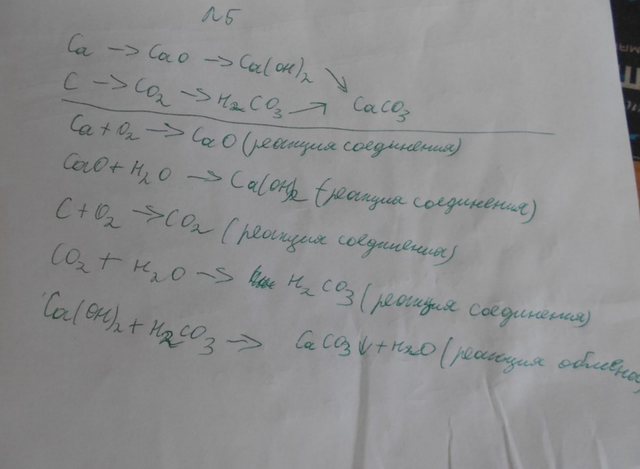 №5
Ca → CaO → Ca(OH)₂ ↘
C → CO₂ → H₂CO₃ → CaCO₃
Ca + O₂ → CaO (реакция соединения)
CaO + H₂O → Ca(OH)₂ (реакция соединения)
C + O₂ → CO₂ (реакция соединения)
CO₂ + H₂O → H₂CO₃ (реакция соединения)
Ca(OH)₂ + H₂CO₃ → CaCO₃↓ + H₂O (реакция обмена